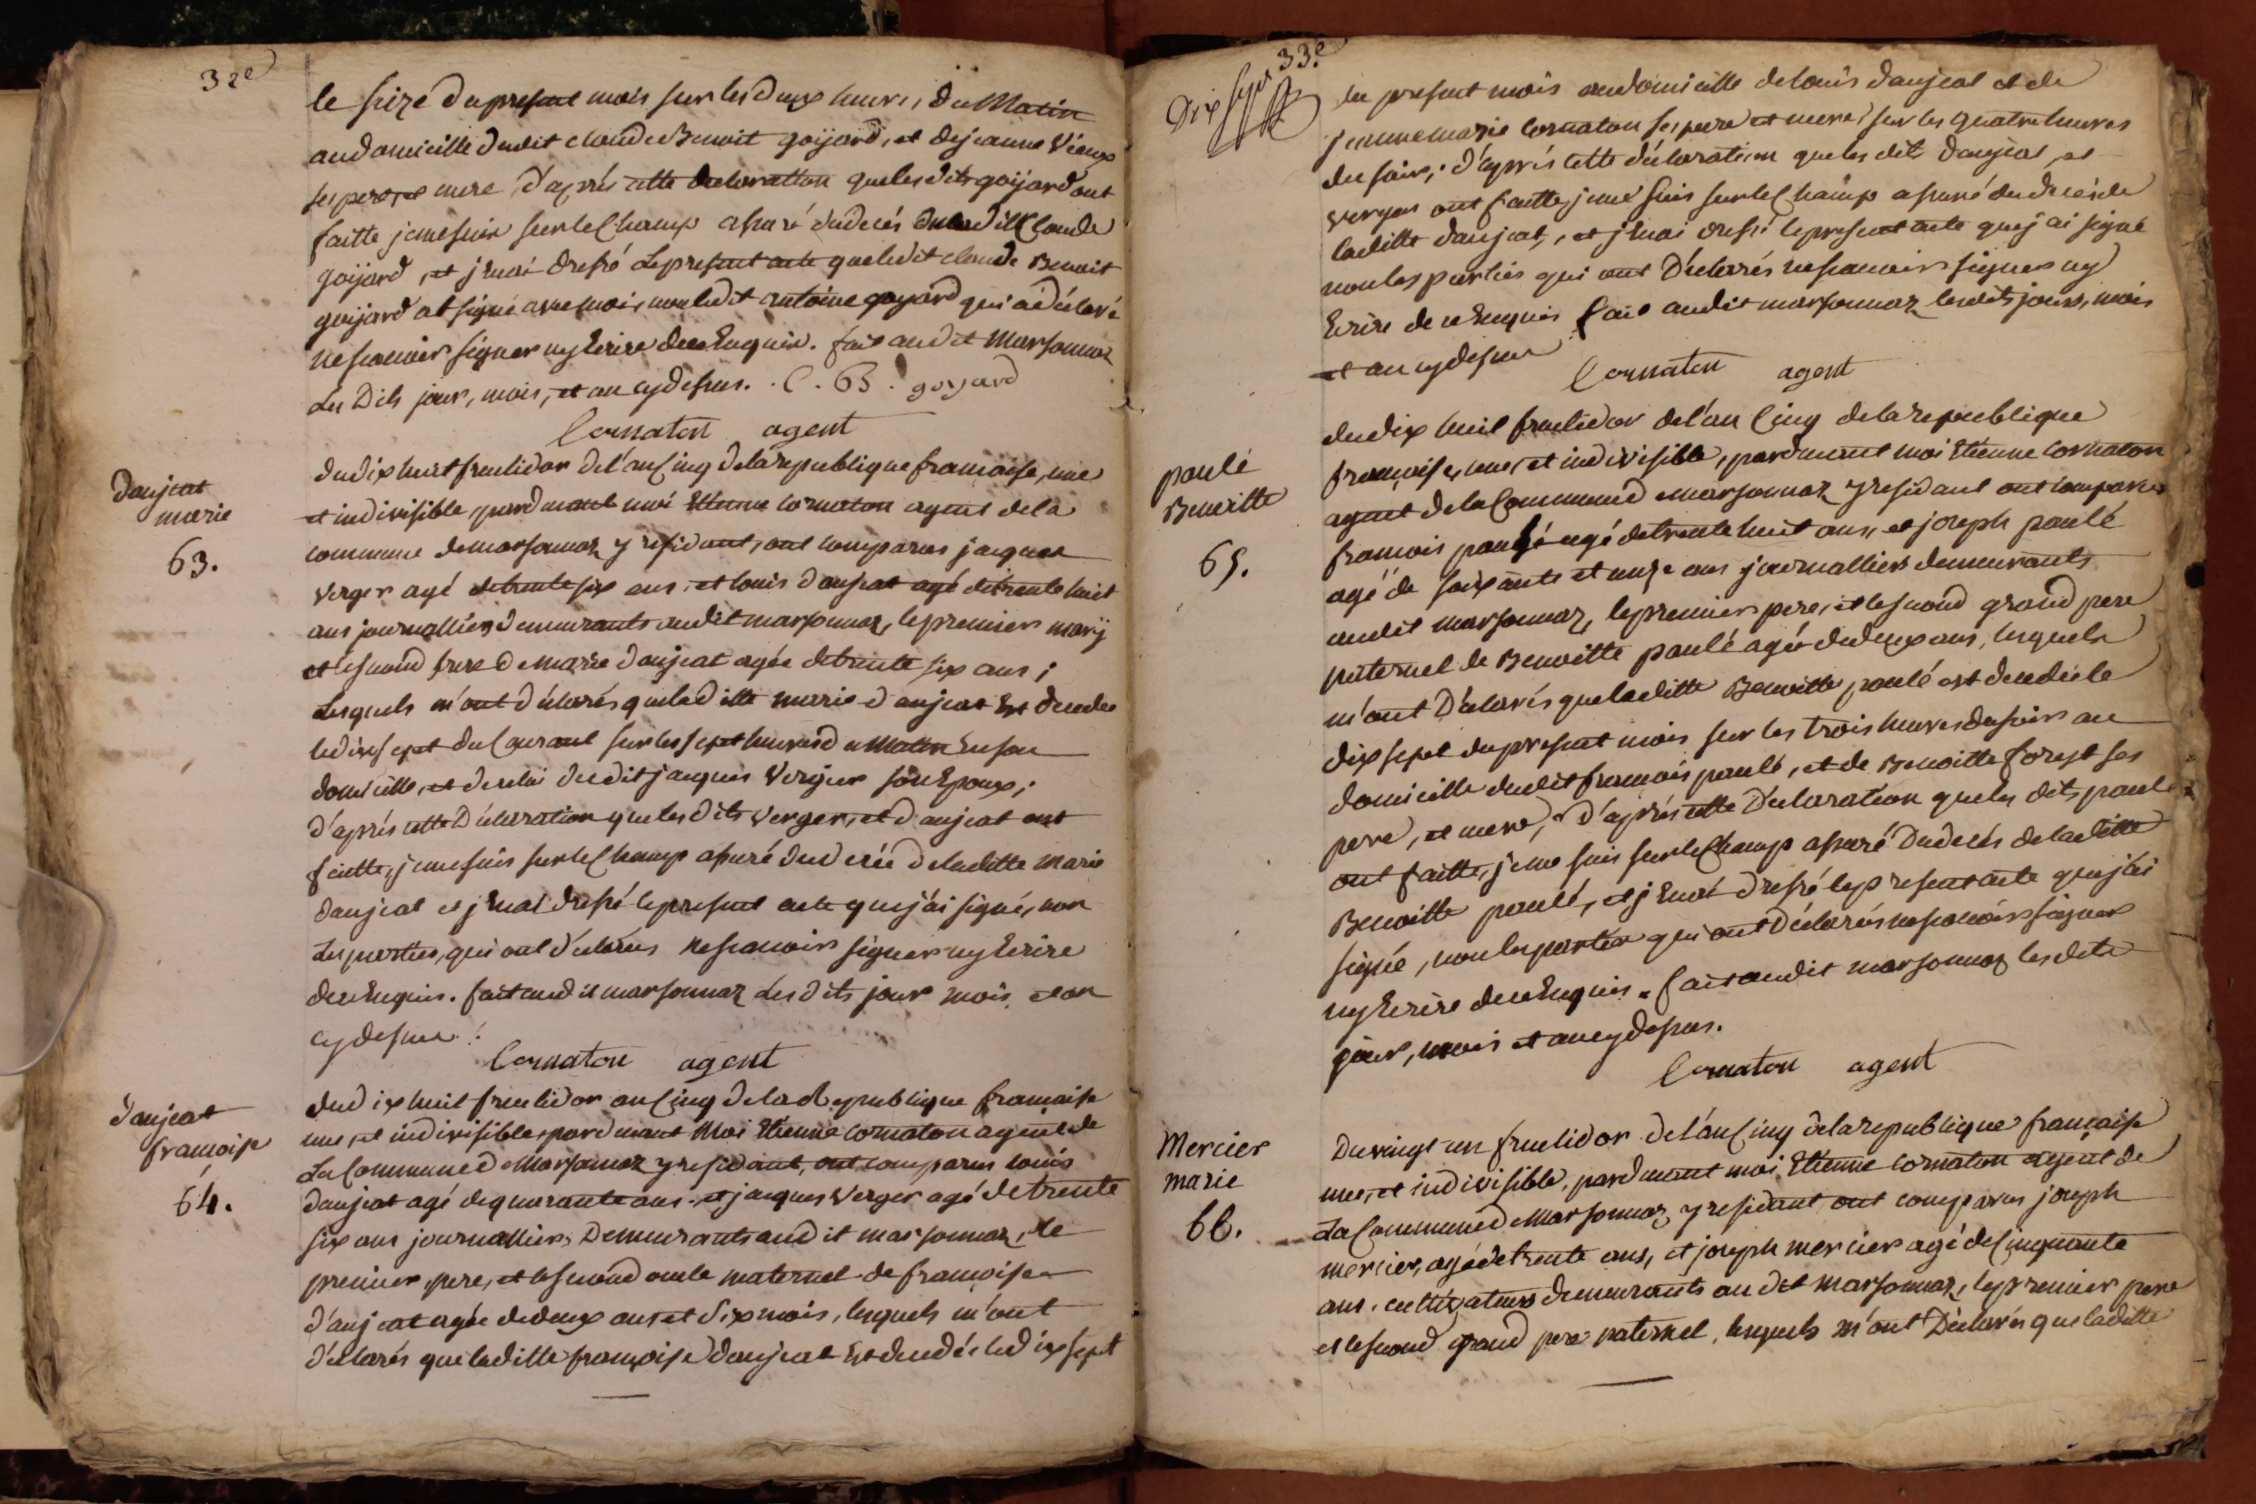 32e
le seize du present mois sur les deux heures du Matin
au domicille dudit claude Benoit goyard, et de jeanne Vieux
ses pere, et mere, d'après cette declaration que les dits goyard ont
faitte je me suis sur le Champ assuré du decés dudit Claude
goyard, et j'en ai dressé le present acte que ledit claude Benoit
goyard at signé avec moi, non ledit antoine goyard qui a déclaré
ne scavoir signer ny Ecrire de ce Enquis. fait audit Marsonnaz
Les Dits jour, mois, et an cy dessus. . C. B. goyard
Cornaton agent
Daujeat
marie
63.
du dix huit fructidor de l'an Cinq de la republique francaise, une
et indivisible, pardevant moi Etienne cornaton agent de la
commune de marsonnaz y residant, ont comparus jacques
verger agé de trente six ans, et louis daujeat agé de trente huit
ans journalliers demeurants audit marsonnaz, le premier marÿ
et le second frere de Marie daujeat agée de trente six ans ;
Lesquels m'ont déclarés que laditte marie daujeat Est decedee
le dix sept du Courant sur les sept heures du Matin En son
domicille, et de celui dudit jacques Verger son Epoux ;
d'après cette Déclaration que les dits verger, et daujeat ont
faitte, je me suis sur le Champ assuré du decés de laditte Marie
daujeat et j'en ai dressé le present acte que j'ai signé, non
Les parties, qui ont déclarés ne scavoir signer ny Ecrire
de ce Enquis. fait audit marsonnaz Les dits jour mois, et an
cy dessus.
Cornaton agent
daujeat
francoise
64.
du dix huit fructidor an Cinq de la Republique francaise
une, et indivisible, pardevant Moi Etienne cornaton agent de
La Commune de Marsonnaz y residant, ont comparus louis
daujeat agé de quarante ans, et jacques Verger agé de trente
six ans journalliers, Demeurants audit marsonnaz, le
premier, pere, et le second oncle maternel de françoise
d'aujeat agée de deux ans et dix mois, lesquels m'ont
déclarés que laditte françoise daujeat Est decedée le dix sept
33.e
Dix sept
du present mois au domicille de louis daujeat et de
jeanne marie Cornaton ses pere et mere, sur les quatre heures
du soir ; d'après cette déclaration que les dits daujeat, et
verger ont faitte, je me suis sur le Champ assuré du decés de
laditte daujeat, et j'en ai dressé le present acte que j'ai signé
non les parties qui ont Déclarés ne scavoir signer ny
Ecrire de ce Enquis fait audit marsonnaz les dits jours, mois
et an cy dessus
Cornaton agent
paulé
Benoitte
65.
du dix huit fructidor de l'an Cinq de la republique
françoise, une, et indivisible, pardevant moi Etienne Cornaton
agent de la Commune de marsonnaz y residant ont comparus
francois paulé agé de trente huit ans, et joseph paulé
agé de soixante et onze ans journalliers demeurants
audit marsonnaz, le premier pere, et le second grand pere
paternel de Benoitte paulé agée de deux ans, lesquels
m'ont Déclarés que laditte Benoitte paulé est decedée le
dix sept du present mois sur les trois heures du soir au
domicille dudit francois paulé, et de Benoitte forest ses
pere, et mere, d'après cette Déclaration que les dits paulé
ont faitte, je me suis sur le Champ assuré Du decés de laditte
Benoitte paulé, et j'en ai dressé le present acte que j'ai
signée, non les parties qui ont Déclarés ne scavoir signer
ny Ecrire de ce Enquis. fait audit marsonnaz les dits
jour, mois et an cy dessus.
Cornaton agent
Mercier
marie
66.
Du vingt un fructidor de l'an Cinq de la republique française
une, et indivisible, pardevant moi Etienne cornaton agent de
La Commune de Marsonnaz y residant ont comparus joseph
mercier, agé de trente ans, et joseph mercier agé de Cinquante
ans, cultivateurs demeurants au dit marsonnaz, le premier pere
et le second grand pere paternel, lesquels m'ont Déclarés que laditte